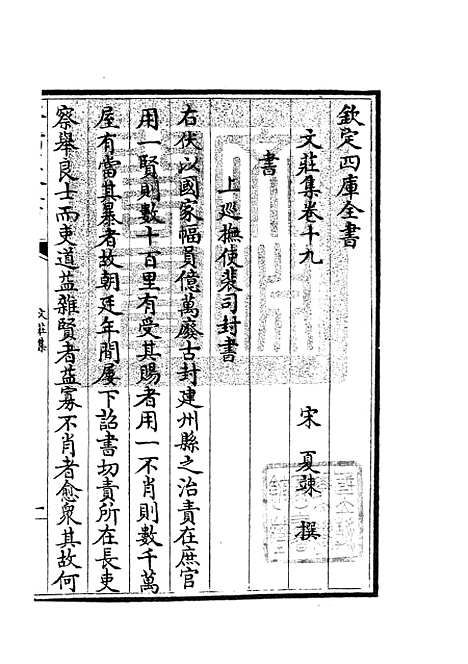 欽定四庫全書
文莊集卷十九
宋 夏竦 撰
書
上巡撫使裴司封書
右伏以國家幅員億萬廢古封建州縣之治責在庶官
用一賢則數十百里有受其賜者用一不肖則數千萬
屋有當其暴者故朝廷年間屢下詔書切責所在長吏
察舉良士而吏道益雜賢者益寡不肖者愈衆其故何
文莊集
一